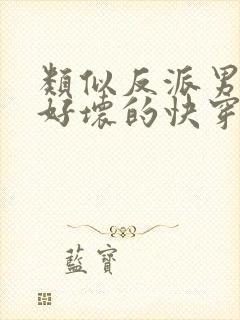 類似反派男
好壞的快穿
藍寶